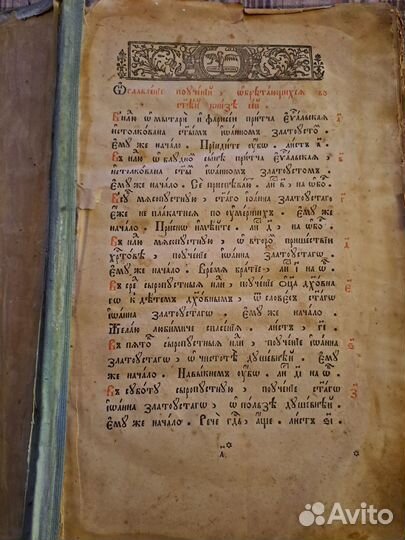 Ѡглавленіе поученій ѡбрѣтающихсѧ во
ст҃ѣй книзѣ сей
Внлю ѡ мытари и фарисеи притча еѵⷢ҇льская
истолкована ст҃ымъ іѡанномъ златоусто
Ему же начало . Пріидите ѹбѡ . листъ а҃
Въ нлю ѡ блудно сынѣ притча еѵⷢ҇льская ,
истолкована ст҃ы іѡанномъ златоустомъ
Ему же начало . Се приспѣваю . ли на ѡбо
мясопустную , стаго іѡанна златоустаго
еже не плакатися по умершихъ . Ему же
начало . Приснѡ ли на ѡбо
Въ нлю мясопустную , ѡ второ пришествіи
хрⷭ҇товѣ , поученіе іѡанна златоустагѡ ,
Ему же начало . Время братіе , ли на ѿ
Въ сре сыропустныя нли , поученіе оц҃а дхѡвна
къ дѣтемъ дхѡвнымъ , ѿ словесъ стагѡ
іѡанна златоустагѡ . Ему же начало .
Желаю любимиче спасенія . листъ , ге .
Въ пято сыропустныя нли , поученіе іѡанна
златоустагѡ , ѡ чистотѣ душевнѣй . Ему
же начало . Навыкнемъ ѹбѡ . ли ді на ѿ
Въ субботу сыропустную , поученіе стагѡ
іѡанна златоустагѡ , ѡ пользѣ душевнѣй .
Ему же начало . Рече гдь , аще . листъ
а҃
Avito